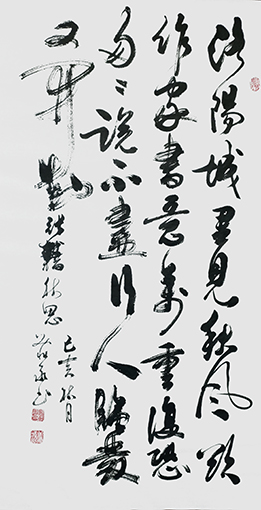 洛陽城里見秋風欲
作家書意萬重復恐
匆々說不盡行人臨發
又開封張籍秋思
己亥秋月